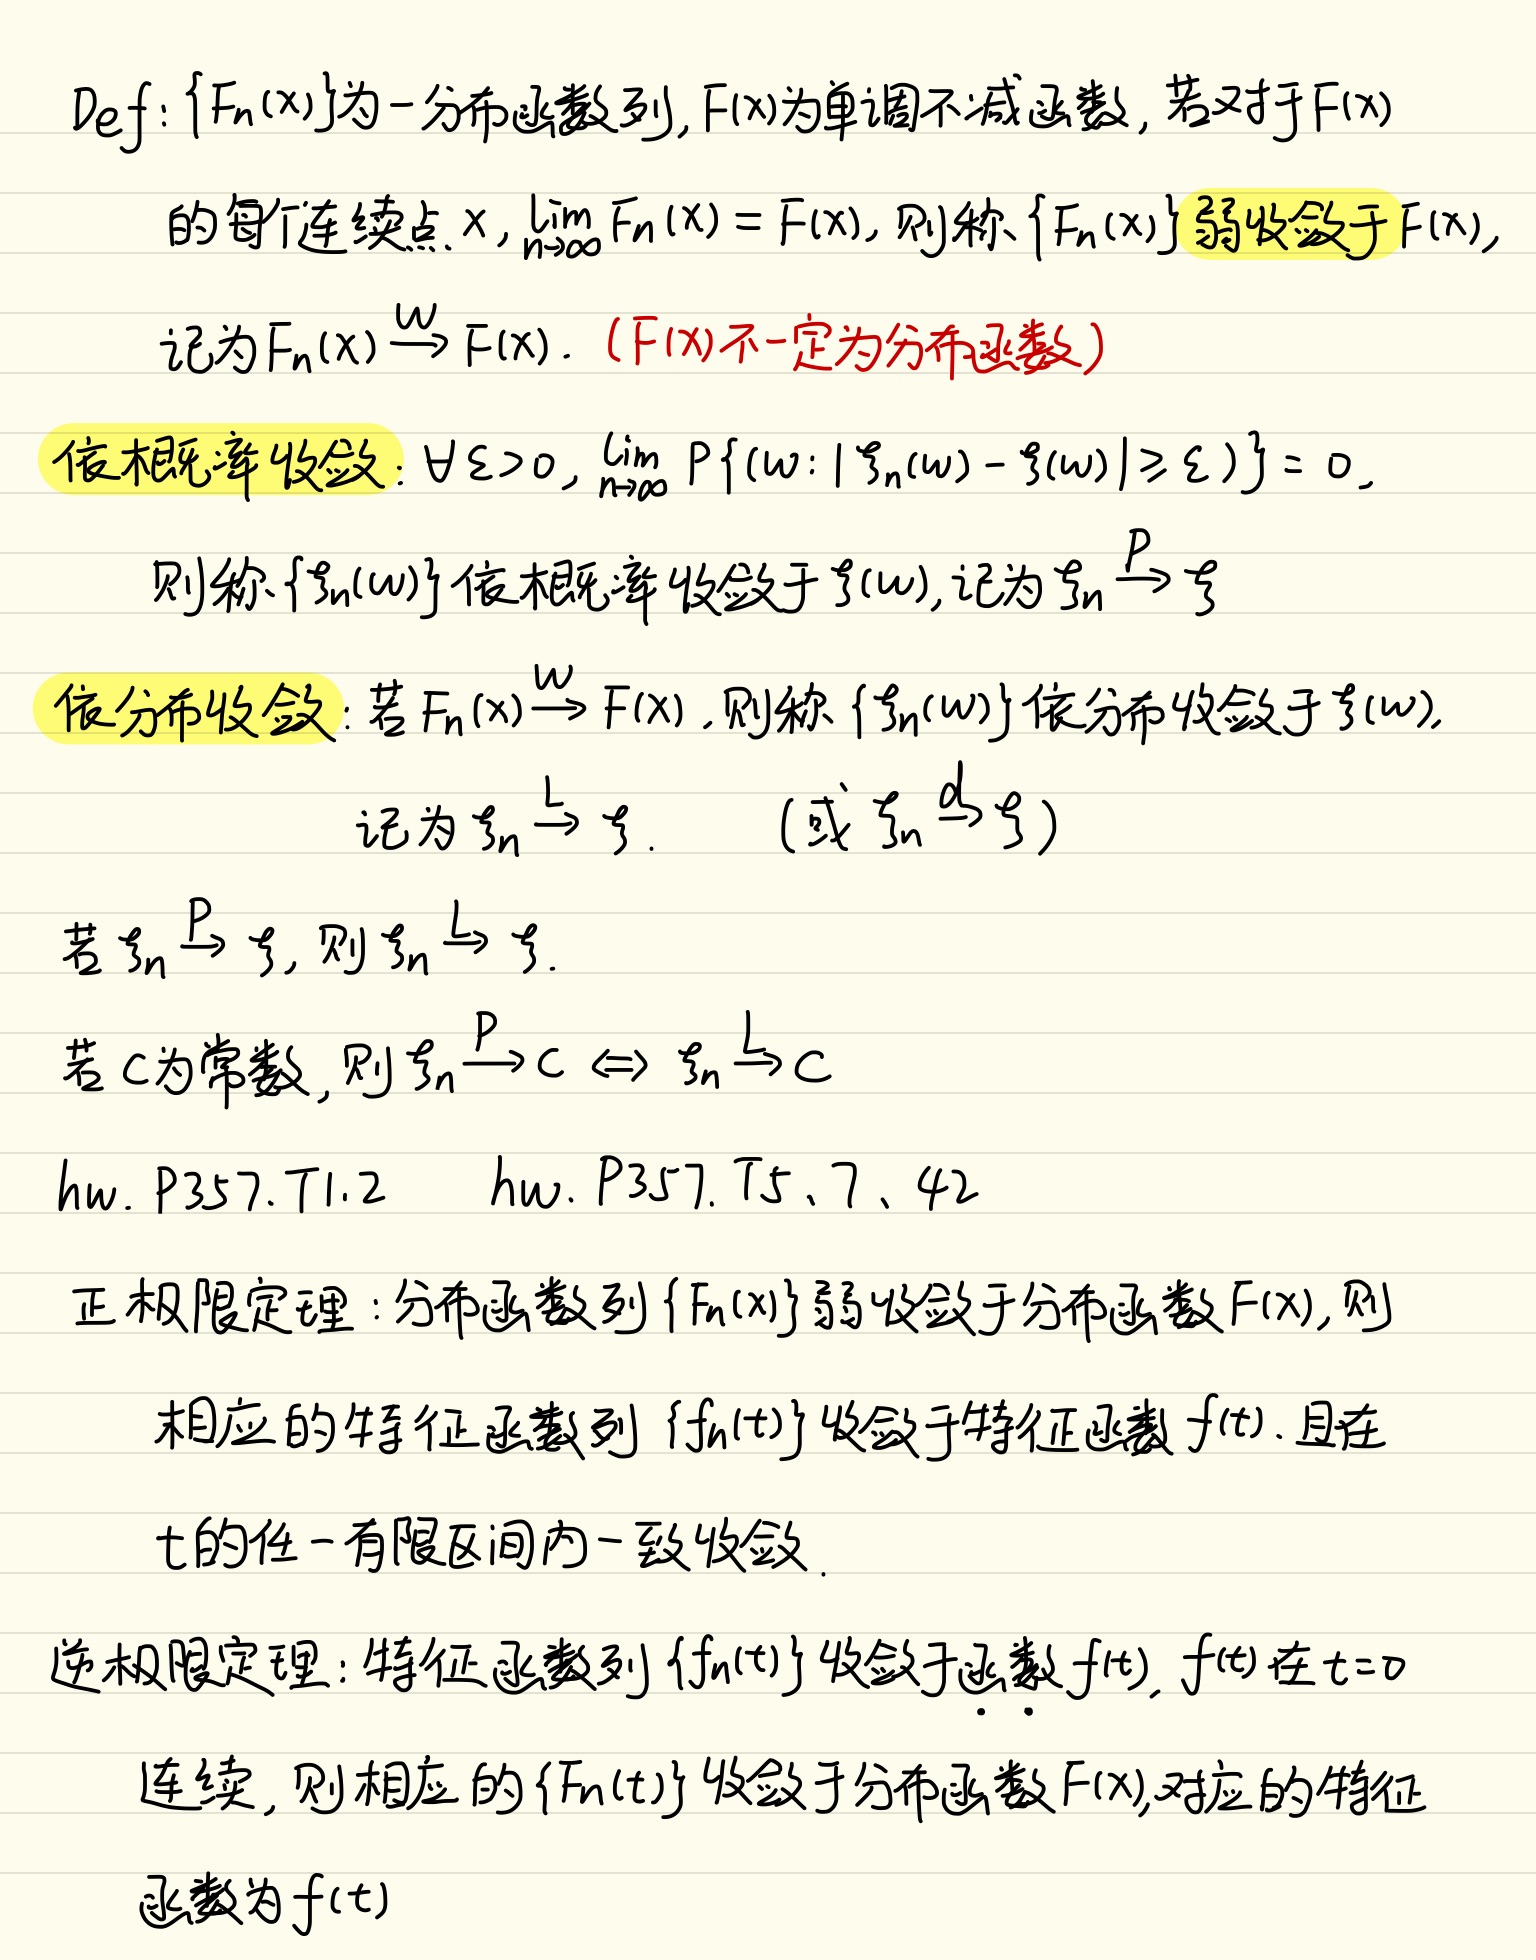 Def: {Fn(x)}为一分布函数列, F(x)为单调不减函数, 若对于F(x)
的每个连续点 x, lim n→∞ Fn(x) = F(x), 则称{Fn(x)}弱收敛于F(x),
记为Fn(x) W→ F(x). (F(x)不一定为分布函数)
依概率收敛: ∀ε>0, lim n→∞ P{(ω: |ξn(ω) - ξ(ω)| ≥ ε)} = 0,
则称{ξn(ω)}依概率收敛于ξ(ω), 记为ξn P→ ξ
依分布收敛: 若Fn(x) W→ F(x), 则称{ξn(ω)}依分布收敛于ξ(ω),
记为ξn L→ ξ. (或 ξn d→ ξ)
若ξn P→ ξ, 则ξn L→ ξ.
若C为常数, 则ξn P→ C ⇔ ξn L→ C
hw. P357. T1.2 hw. P357. T5、7、42
正极限定理: 分布函数列{Fn(x)}弱收敛于分布函数F(x), 则
相应的特征函数列{fn(t)}收敛于特征函数f(t). 且在
t的任一有限区间内一致收敛.
逆极限定理: 特征函数列{fn(t)}收敛于函数f(t), f(t)在t=0
连续, 则相应的{Fn(t)}收敛于分布函数F(x), 对应的特征
函数为f(t)